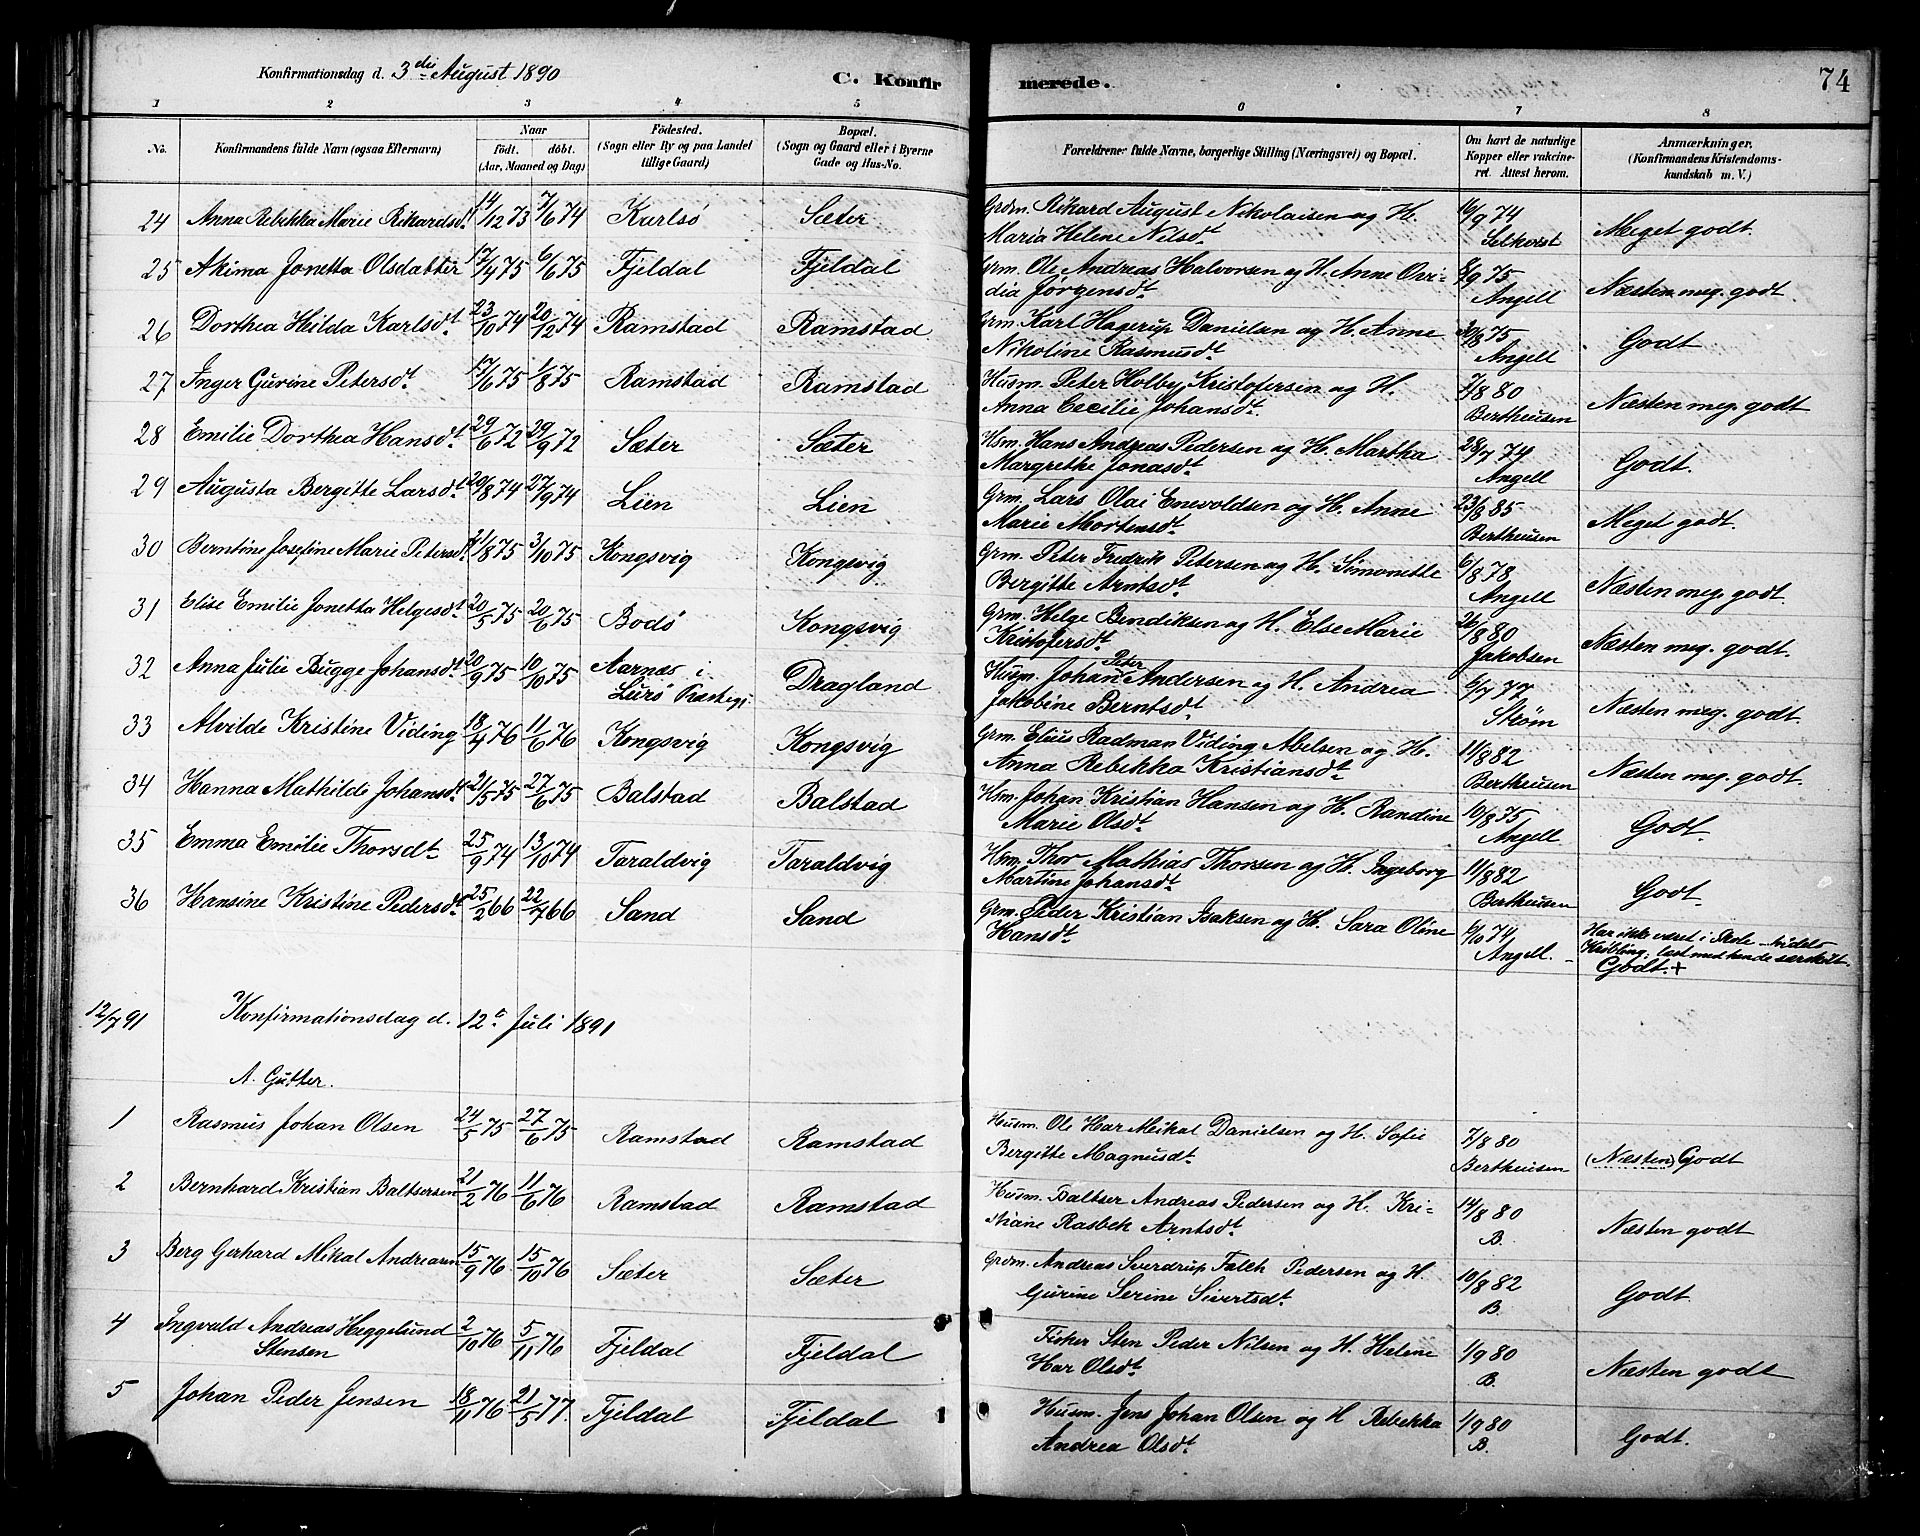 Konfirmationsdag d. 3die August 1890 C. Konfirmerede. 74
1 2 3 4 5 6 7 8
No. Konfirmandens fulde Navn (ogsaa Efternavn) Naar födt. döbt. (Aar, Maaned og Dag) Födested. (Sogn eller By og paa Landet tillige Gaard) Bopæl. (Sogn og Gaard eller i Byerne Gade og Hus-No. Forældrenes fulde Navne, borgerlige Stilling (Næringsvei) og Bopæl. Om havt de naturlige Kopper eller vakcineret. Attest herom. Anmærkninger. (Konfirmandens Kristendomskundskab m. V.)
24 Anna Rebekka Marie Rikardsdt. 14/12 73 7/6 74 Karlsö Sæter Grdm. Rikard August Nikolaisen og H. Maria Helene Nilsdt. 16/9 74 Meget godt.
25 Akima Jonetta Olsdatter 17/4 75 6/6 75 Fjeldal Fjeldal Grm. Ole Andreas Halvorsen og H. Anne Ovidia Jörgensdt. 8/9 75 Angell Næsten meg. godt.
26 Dorthea Hilda Karlsdt. 23/10 74 20/12 74 Ramstad Ramstad Grm. Karl Hagerup Danielsn og H. Anne Nikoline Rasmusdt. 30/8 75 Angell Godt
27 Inger Gurine Petersdt. 17/6 75 1/8 75 Ramstad Ramstad Husm. Peter Holby Kristofersen og H. Anna Cecilie Johansdt. 7/8 80 Bertheusen Næsten meg. godt
28 Emilie Dorthea Hansdt. 29/6 72 29/9 72 Sæter Sæter Hsm. Hans Andreas Pedersen og H. Martha Margrethe Jonasdt. 28/7 74 Angell Godt.
29 Augusta Bergitte Larsdt. 20/8 74 27/9 74 Lien Lien Grm. Lars Olai Enevoldsen og H. Anne Marie Mortensdt. 23/8 85 Bertheusen Meget godt.
30 Berntine Josefine Marie Petersdt. 21/8 75 3/10 75 Kongsvig Kongsvig Grm. Peter Fredrik Petersen og H. Simonette Bergitte Arntsdt. 6/8 78 Angell Næsten meg. godt.
31 Elise Emilie Jonetta Helgesdt. 20/5 75 20/6 75 Bodö Kongsvig Grm. Helge Bendiksen og H. Else Marie Kristofersdt. 26/8 80 Jakobsen Næsten meg. godt.
32 Anna Julie Bugge Johansdt. 20/9 75 10/10 75 Aarnæs i Leirö Dragland Husm. Johan Peter Andersen og H. Andrea Jakobine Berntsdt. 6/7 77 Ström Næsten meg. godt.
33 Alvilde Kristine Viding 18/4 76 11/6 76 Kongsvig Kongsvig Grm. Elius Radman Viding Abelsen og H. Anna Rebekka Kristiansdt. 11/8 82 Bertheusen Næsten meg. godt.
34 Hanna Mathilde Johansdt. 21/5 75 27/6 75 Balstad Balstad Hsm. Johan Kristian Hansen og H. Randine Marie Olsdt. 10/8 75 Angell Godt.
35 Emma Emilie Thorsdt. 25/9 74 13/10 74 Taraldvig Taraldvig Hsm. Thor Mathias Thorsen og H. Ingeborg Martine Johansdt. 11/8 82 Bertheusen Godt.
36 Hansine Kristine Pedersdt. 25/2 66 22/7 66 Sand Sand Grm. Peder Kristian Isaksen og H. Sara Oline Hansdt. 6/10 74 Angell. Har ikke været i Skole – Kröbling; læst med hende særskilt. Godt. +
12/7 91 Konfirmationsdag d. 12te Juli 1891
A. Gutter.
1 Rasmus Johan Olsen 24/5 75 27/6 75 Ramstad Ramstad Husm. Ole Har Mikal Danielsen og H. Sofie Bergitte Magnusdt. 7/8 80 Bertheusen (Næsten) Godt
2 Bernhard Kristian Baltsersen 21/2 76 11/6 76 Ramstad Ramstad Husm. Baltser Andreas Pedersen og H. Kristiane Rasbek Arntsdt. 14/8 80 B. Næsten godt
3 Berg Gerhard Mikal Andreasen 15/9 76 15/10 76 Sæter Sæter Grdm. Andreas Sverdrup Falch Pedersen og H. Gurine Serine Sivertsdt. 10/8 82 B. Godt.
4 Ingvald Andreas Heggelund Stensen 2/10 76 5/11 76 Fjeldal Fjeldal Fisker Sten Peder Nilsen og H. Helene Har Olsdt. 1/9 80 B. Næsten godt
5 Johan Peder Jensen 18/11 76 21/5 77. Fjeldal Fjeldal Husm. Jens Johan Olsen og H Rebekka Andrea Olsdt. 1/9 80 B. Godt.